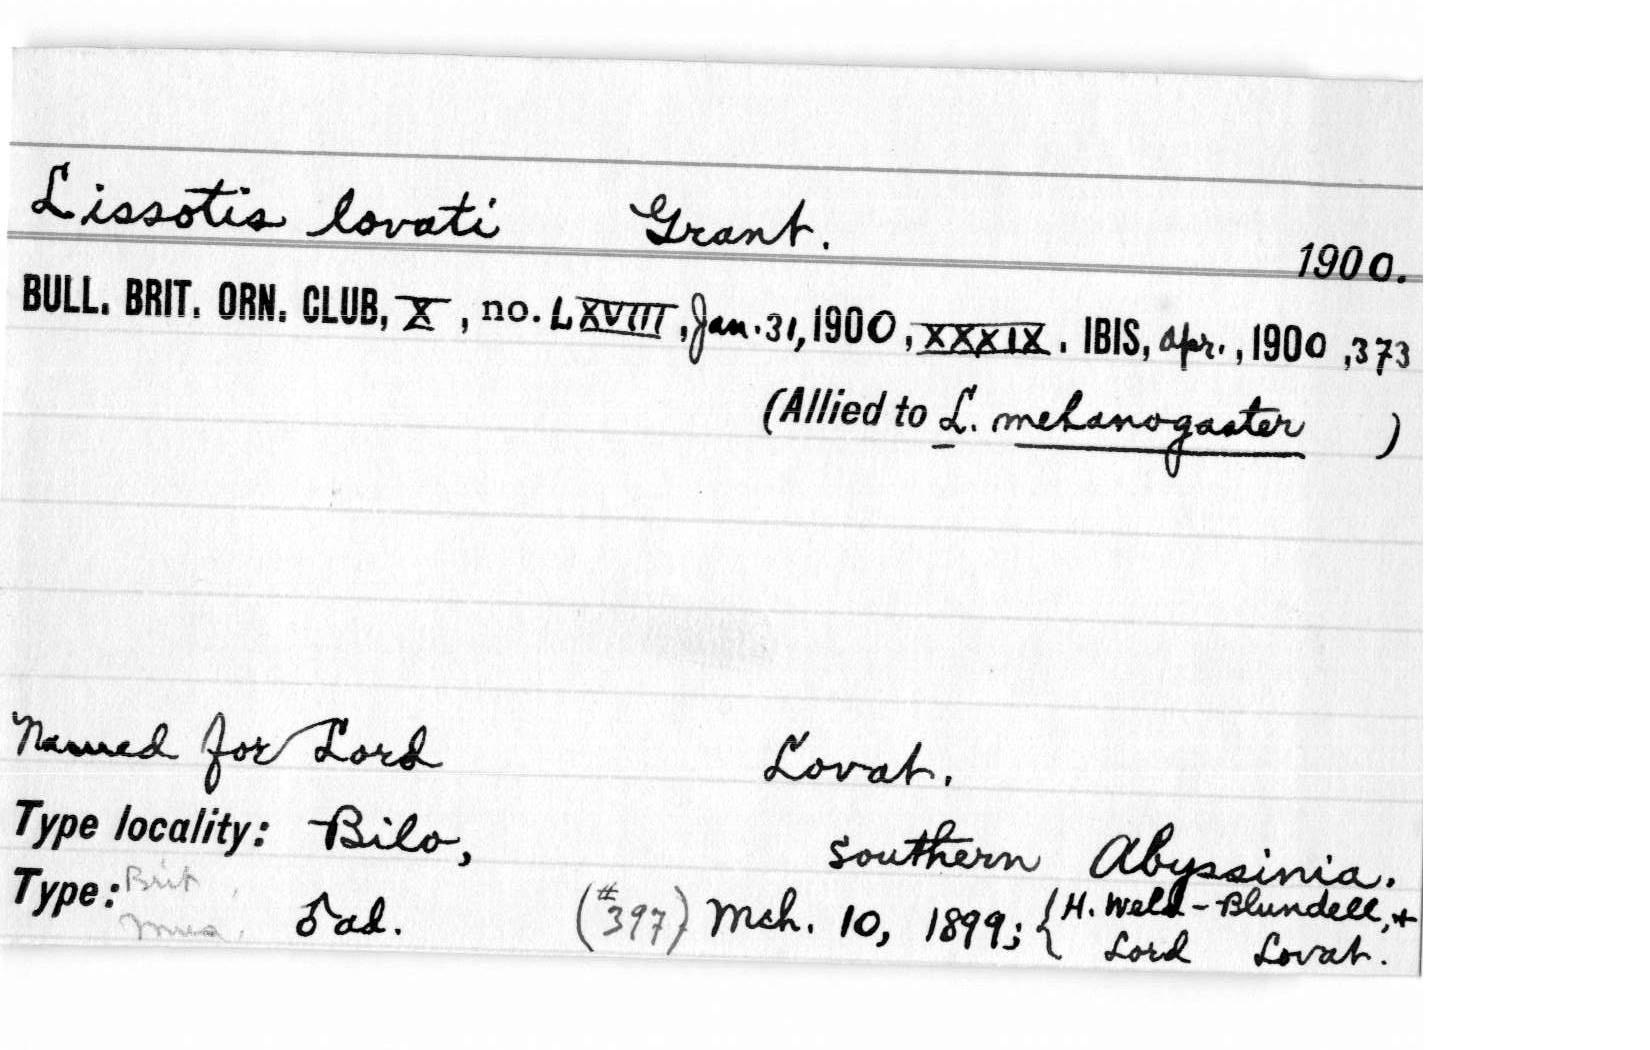 Lissotis lovati Grant.
1900.
BULL. BRIT. ORN. CLUB, X, no. LXVIII, Jan. 31, 1900, XXXIX. IBIS, Apr., 1900, 373
(Allied to L. melanogaster )
Named for Lord Lovat.
Type locality: Bilo, southern Abyssinia.
Type: Brit. Mus. ♂ ad. (#397) Mch. 10, 1899; {H. Weld-Blundell, +
Lord Lovat.